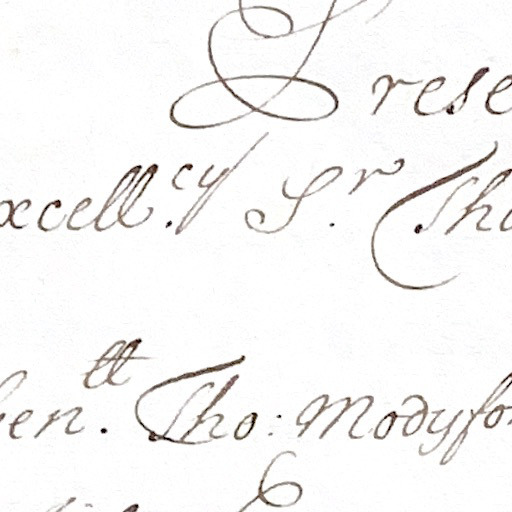 Prese
xcell.cy S.r Tho
en.tt Tho: Modyfor